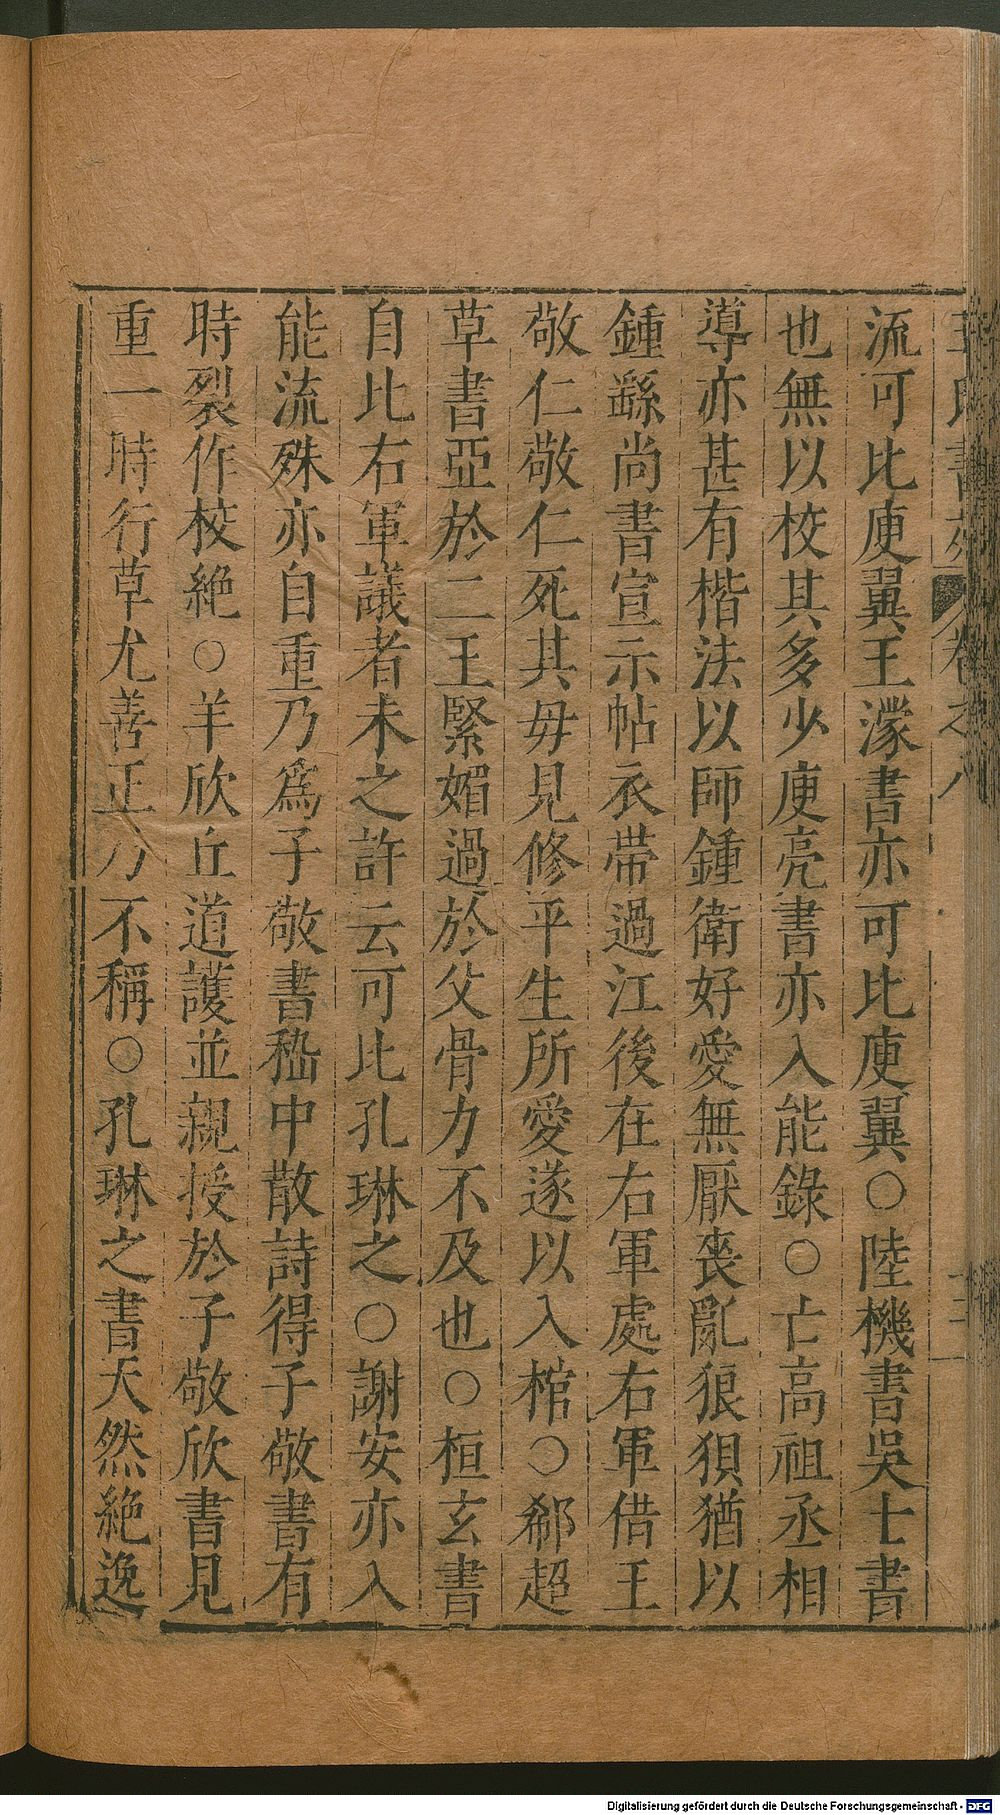 流可比庾翼王濛書亦可比庾翼○陸機書吳士書
也無以校其多少庾亮書亦入能錄○亡高祖丞相
導亦甚有楷法以師鍾衛好愛無厭喪亂狼狽猶以
鍾繇尚書宣示帖衣帶過江後在右軍處右軍借王
敬仁敬仁死其毋見修平生所愛遂以入棺○郗超
草書亞於二王緊媚過於父骨力不及也○桓玄書
自比右軍議者未之許云可比孔琳之○謝安亦入
能流殊亦自重乃爲子敬書嵇中散詩得子敬書有
時裂作校絶○羊欣丘道護並親授於子敬欣書見
重一時行草尤善正乃不稱○孔琳之書天然絶逸
卷之八
Digitalisierung gefördert durch die Deutsche Forschungsgemeinschaft - DFG